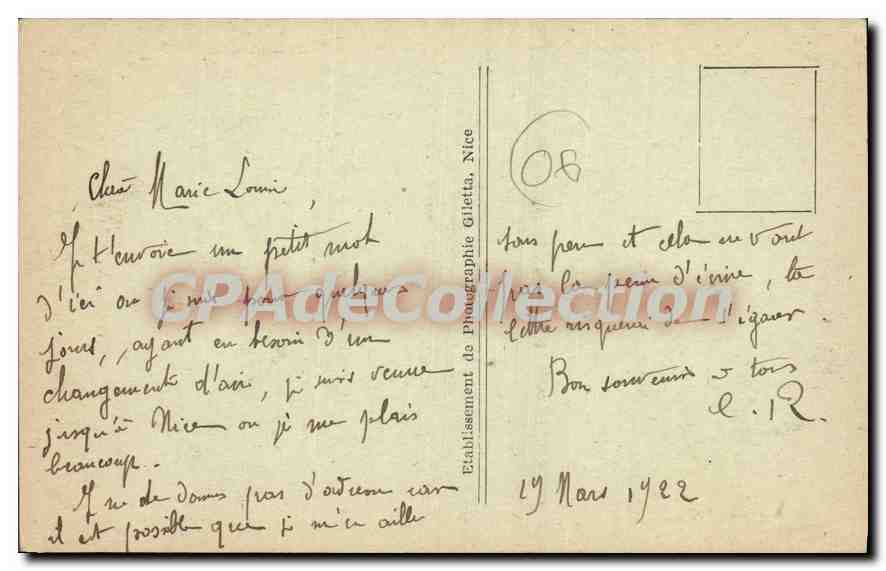 Chère Marie Louise,
Je t'envoie un petit mot
d'ici ou je suis pour quelques
jours, ayant eu besoin d'un
changement d'air, je suis venue
jusqu'à Nice ou je me plais
beaucoup.
Je ne te donne pas d'adresse car
il est possible que je m'en aille
Etablissement de Photographie Giletta, Nice
08
sous peu et cela ne vaut
pas la peine d'écrire, ta
lettre risquerai de s'égarer.
Bon souvenir à tous
C. R.
19 Mars 1922
CPAdeCollection